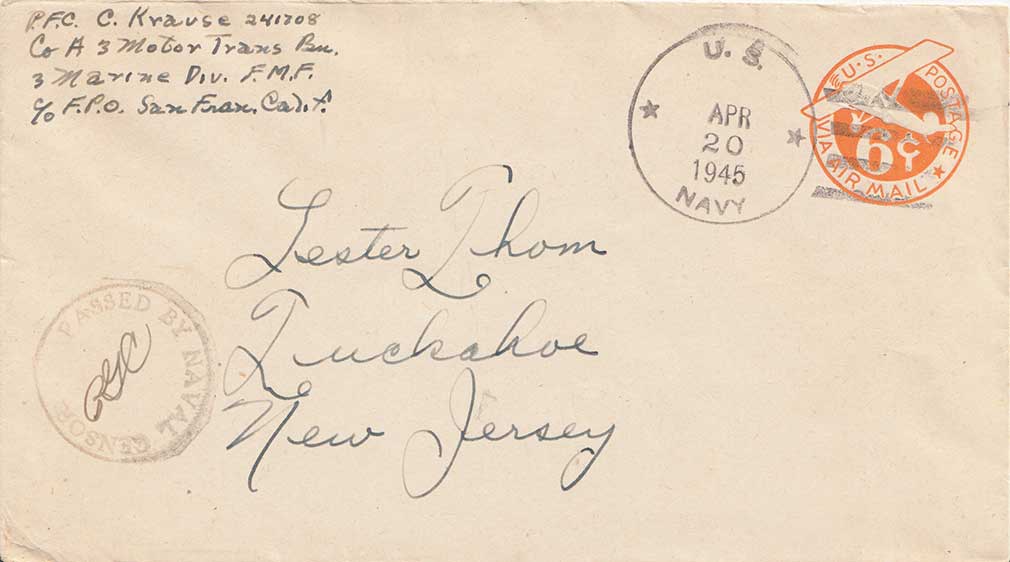 P.F.C. C. Krause 241708
Co A 3 Motor Trans Bn.
3 Marine Div. F.M.F.
c/o F.P.O. San Fran, Calif.
U.S.
APR
20
1945
NAVY
U.S. POSTAGE
6¢
VIA AIR MAIL
Lester Thom
Tuckahoe
New Jersey
PASSED BY NAVAL CENSOR